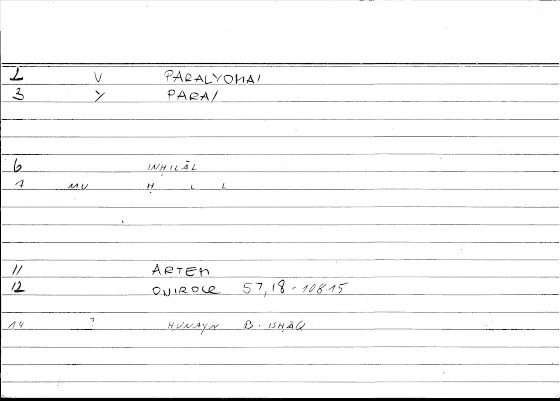 1 V PARALYOMAI
3 Y PARA/
6 INḤILĀL
7 MU Ḥ L L
11 ARTEM
12 ONIROCR 57,18 - 108.15
14 ? ḤUNAYN B. ISḤĀQ